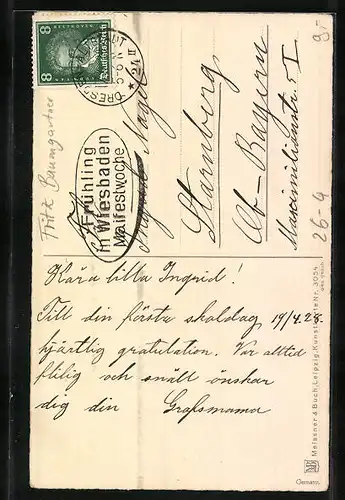 8 8
Deutsches Reich
DRESDEN
24 II
Fritz Baumgartner
Frühling
in Wiesbaden
Maifestwoche
Nagel
Starnberg
Ob-Bayern
Maximilianstr. 5 I
26-4
9.-
Kära lilla Ingrid!
Till din första skoldag 19/4.28.
hjärtlig gratulation. Var alltid
flitig och snäll önskar
dig din Grossmama
Meissner & Buch, Leipzig, Kunst Nr. 3054